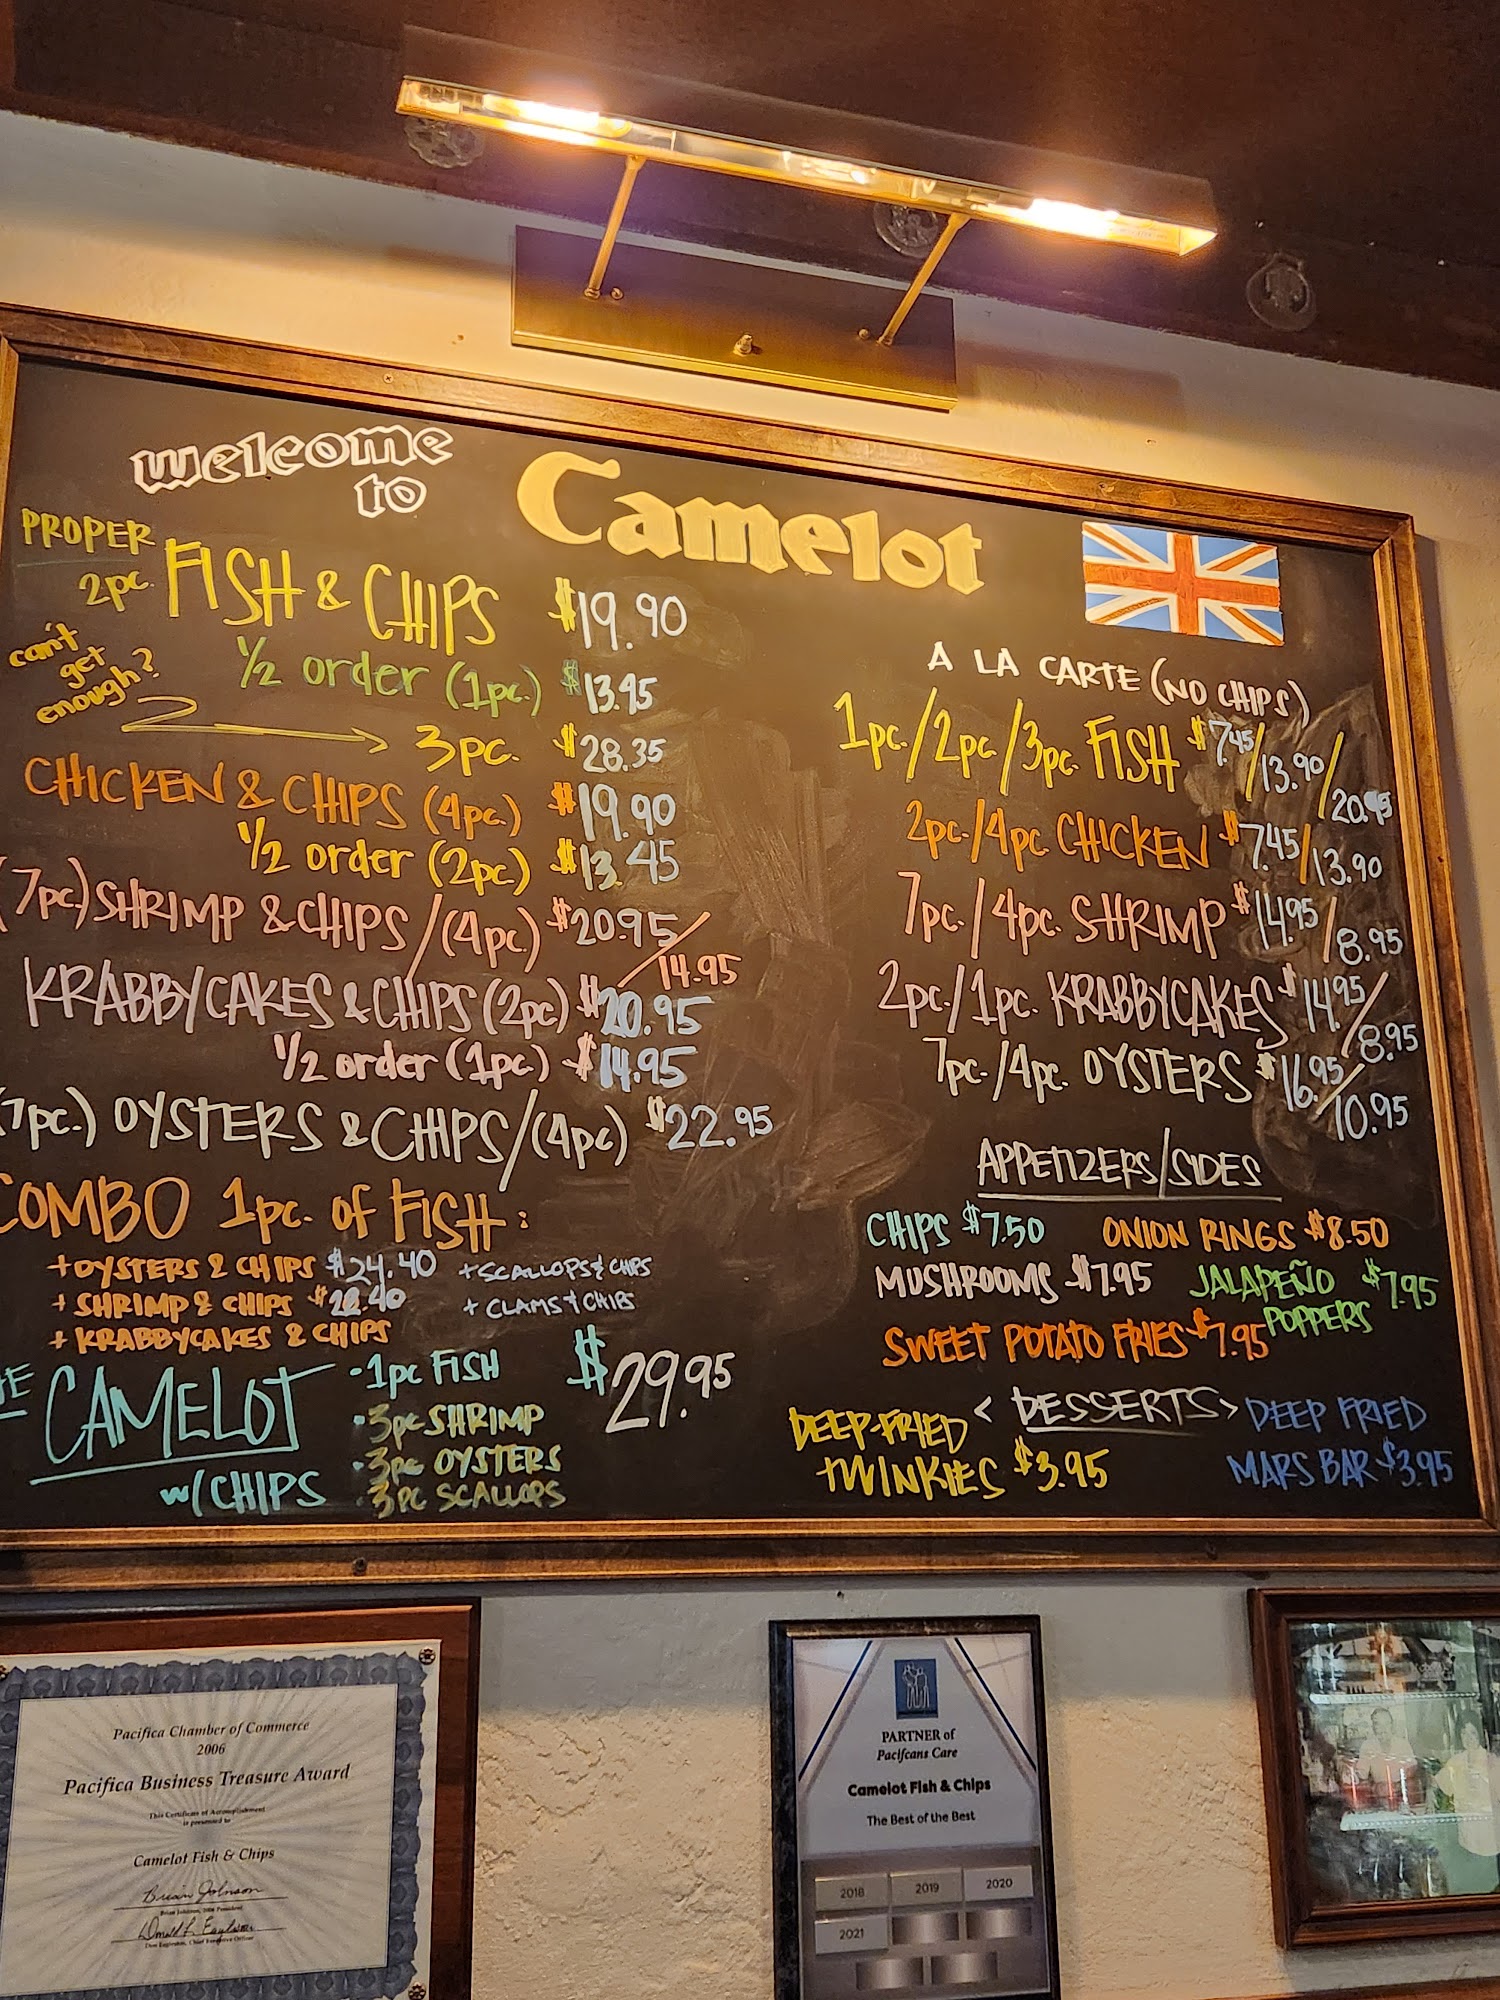 welcome
to
Camelot
PROPER
2pc. FISH & CHIPS $19.90
can't
get
enough?
1/2 order (1pc.) $13.45
3pc. $28.35
CHICKEN & CHIPS (4pc.) $19.90
1/2 order (2pc.) $13.45
(7pc) SHRIMP & CHIPS/(4pc.) $20.95/
14.95
KRABBYCAKES & CHIPS (2pc) $20.95
1/2 order (1pc.) $14.95
(7pc.) OYSTERS & CHIPS/(4pc) $22.95
COMBO 1pc. of FISH:
+OYSTERS & CHIPS $24.40
+ SHRIMP & CHIPS
+ KRABBYCAKES & CHIPS
+ SCALLOPS & CHIPS
+ CLAMS & CHIPS
CAMELOT
w/ CHIPS
•1pc FISH
•3pc SHRIMP
•3pc OYSTERS
•3pc SCALLOPS
$29.95
A LA CARTE (NO CHIPS)
1pc./2pc./3pc. FISH $7.45/13.90/20.95
2pc./4pc. CHICKEN $7.45/13.90
7pc./4pc. SHRIMP $14.95/8.95
2pc./1pc. KRABBYCAKES $14.95/8.95
7pc./4pc. OYSTERS $16.95/10.95
APPETIZERS/SIDES
CHIPS $7.50
ONION RINGS $8.50
MUSHROOMS $7.95
JALAPEÑO $7.95
POPPERS
SWEET POTATO FRIES $7.95
< DESSERTS >
DEEP-FRIED
TWINKIES $3.95
DEEP FRIED
MARS BAR $3.95
Pacifica Chamber of Commerce
2006
Pacifica Business Treasure Award
This Certificate of Accomplishment
is presented to
Camelot Fish & Chips
Brian Johnson
Brian Johnson, 2006 President
PARTNER of
Pacifcans Care
Camelot Fish & Chips
The Best of the Best
2018 2019 2020
2021